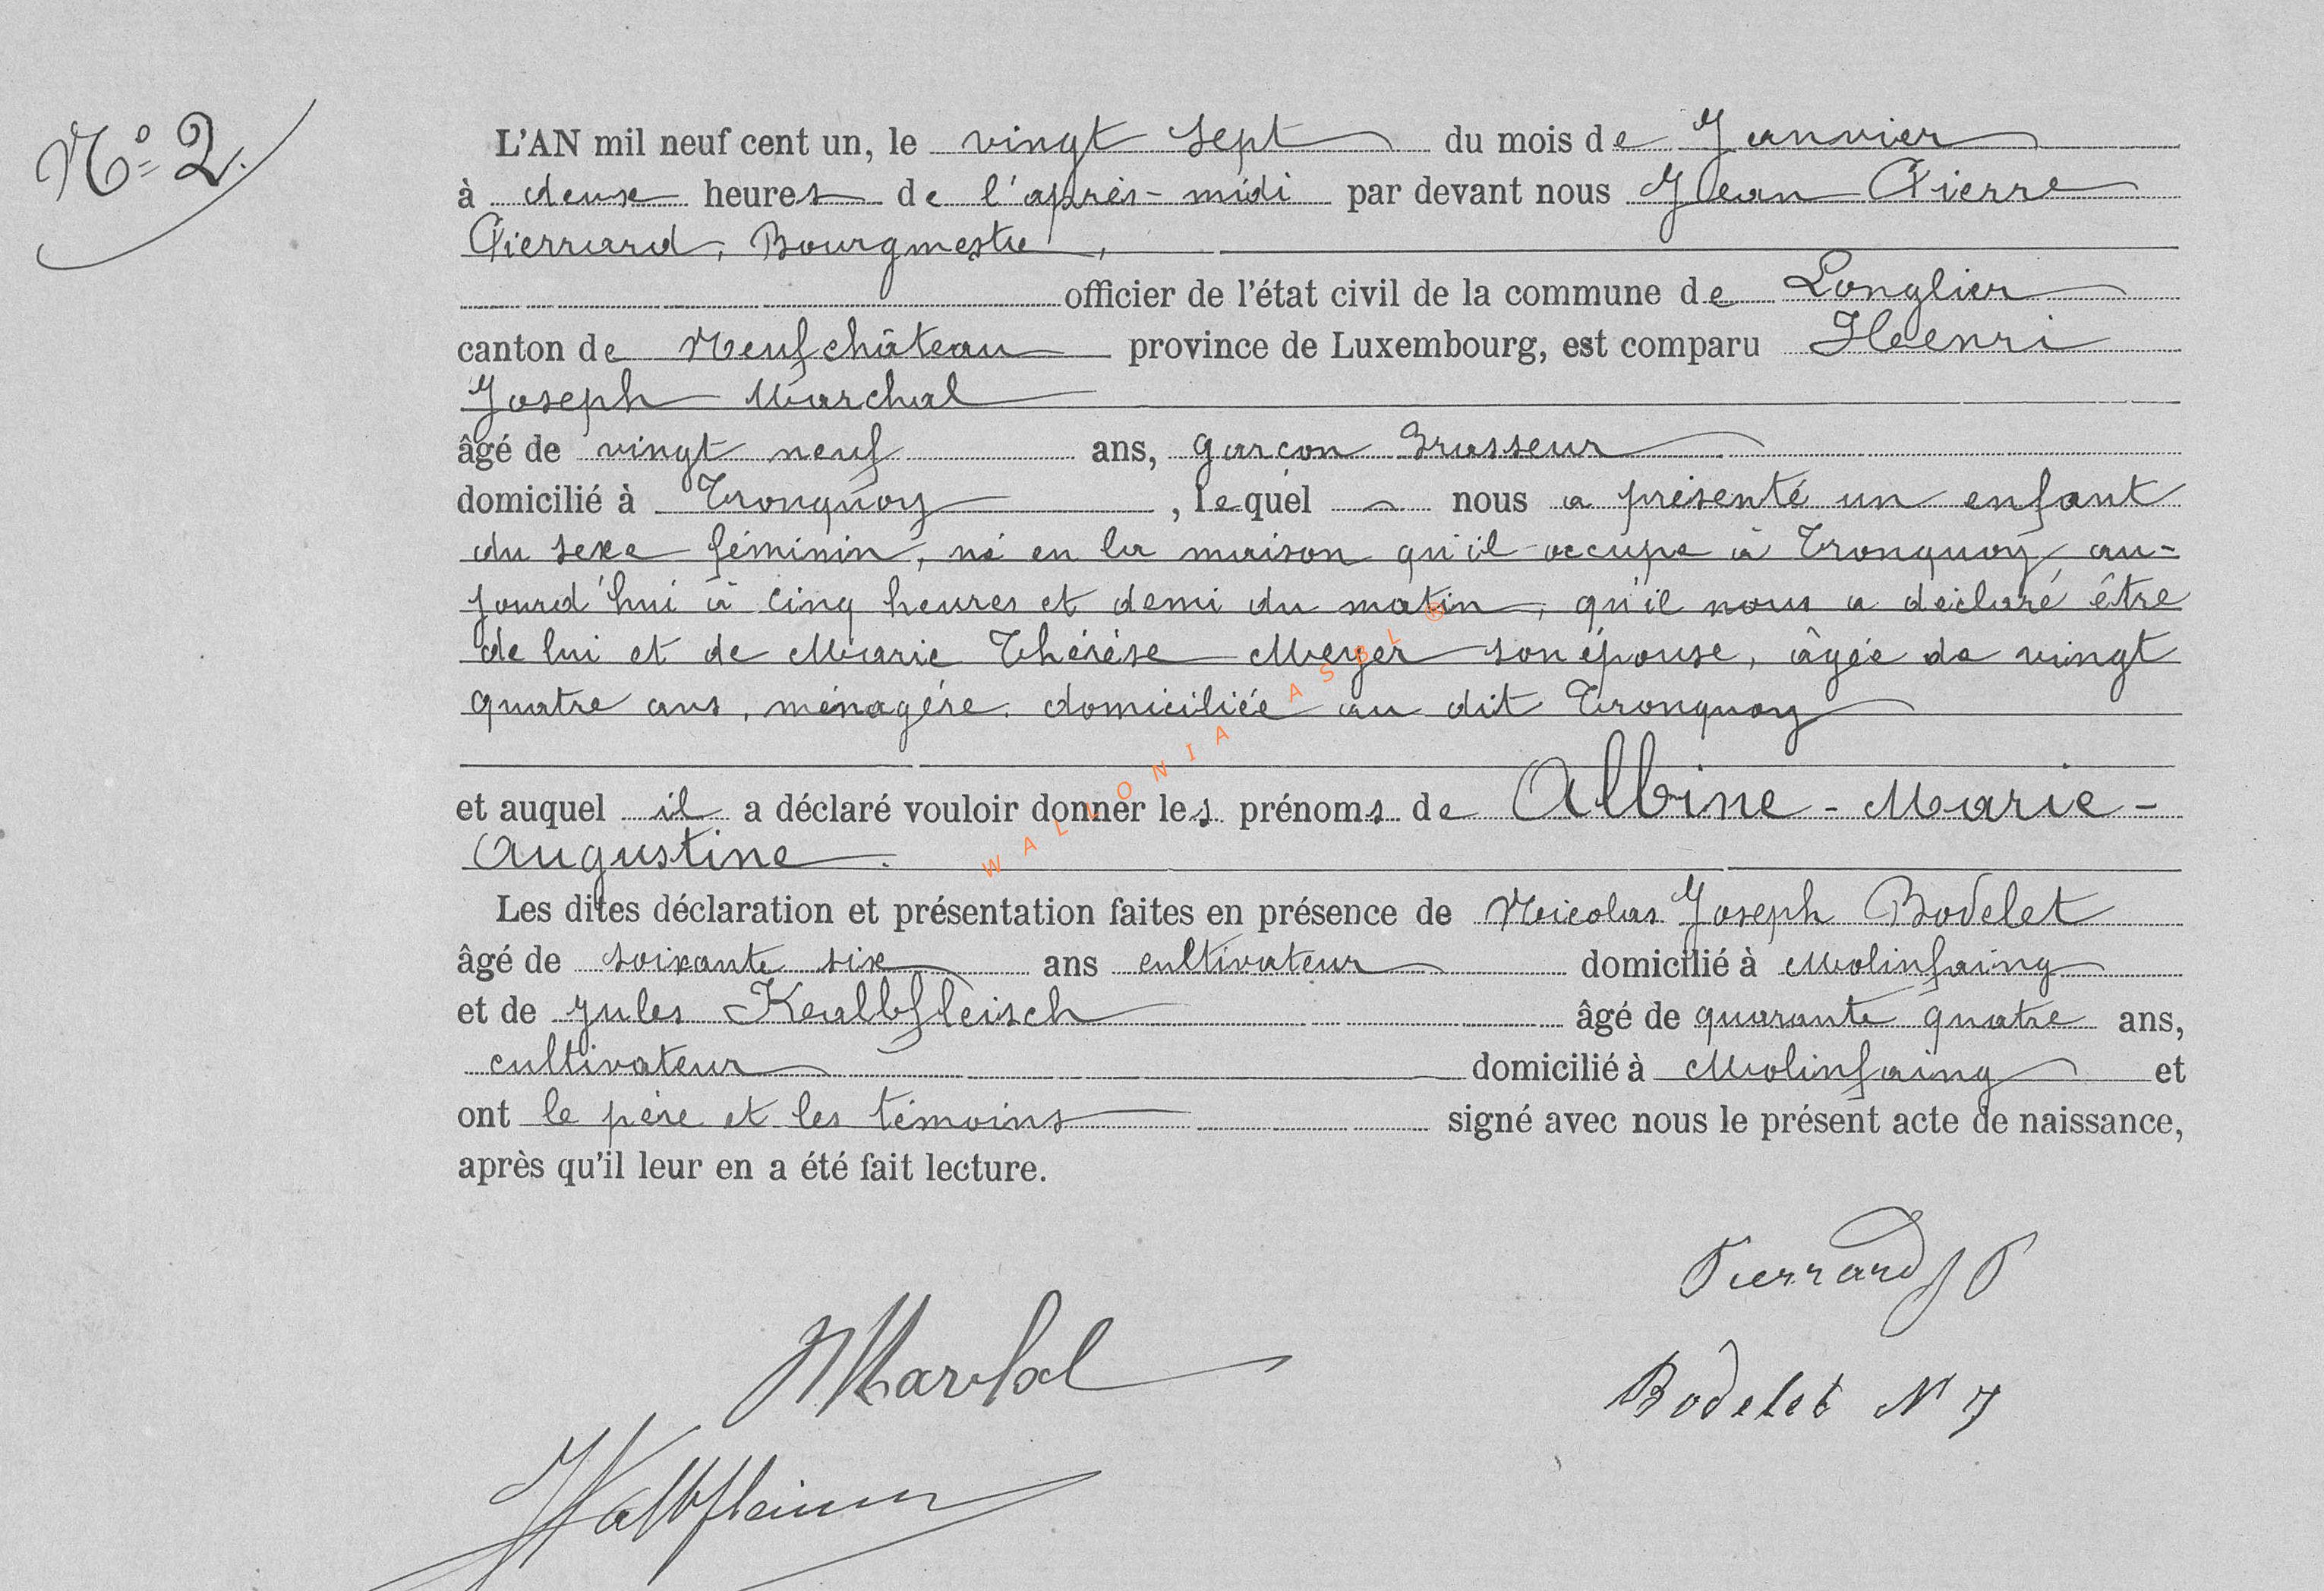 N° 2.
L'AN mil neuf cent un, le vingt sept du mois de Janvier
à deux heures de l'après-midi par devant nous Jean Pierre
Pierrard, Bourgmestre,
officier de l'état civil de la commune de Longlier
canton de Neufchâteau province de Luxembourg, est comparu Henri
Joseph Marchal
âgé de vingt neuf ans, garçon brasseur
domicilié à Tronquoy, lequel nous a présenté un enfant
du sexe féminin, né en la maison qu'il occupe à Tronquoy, au-
jourd'hui à cinq heures et demi du matin, qu'il nous a déclaré être
de lui et de Marie Thérèse Meyer son épouse, âgée de vingt
quatre ans, ménagère domiciliée au dit Tronquoy
et auquel il a déclaré vouloir donner les prénoms de Albine-Marie-
Augustine.
Les dites déclaration et présentation faites en présence de Nicolas Joseph Bodelet
âgé de soixante six ans cultivateur domicilié à Molinfaing
et de Jules Kalbfleisch âgé de quarante quatre ans,
cultivateur domicilié à Molinfaing et
ont le père et les témoins signé avec nous le présent acte de naissance,
après qu'il leur en a été fait lecture.
Pierrard J P
Marchal
Bodelet N J
WALLONIA ASBL ®